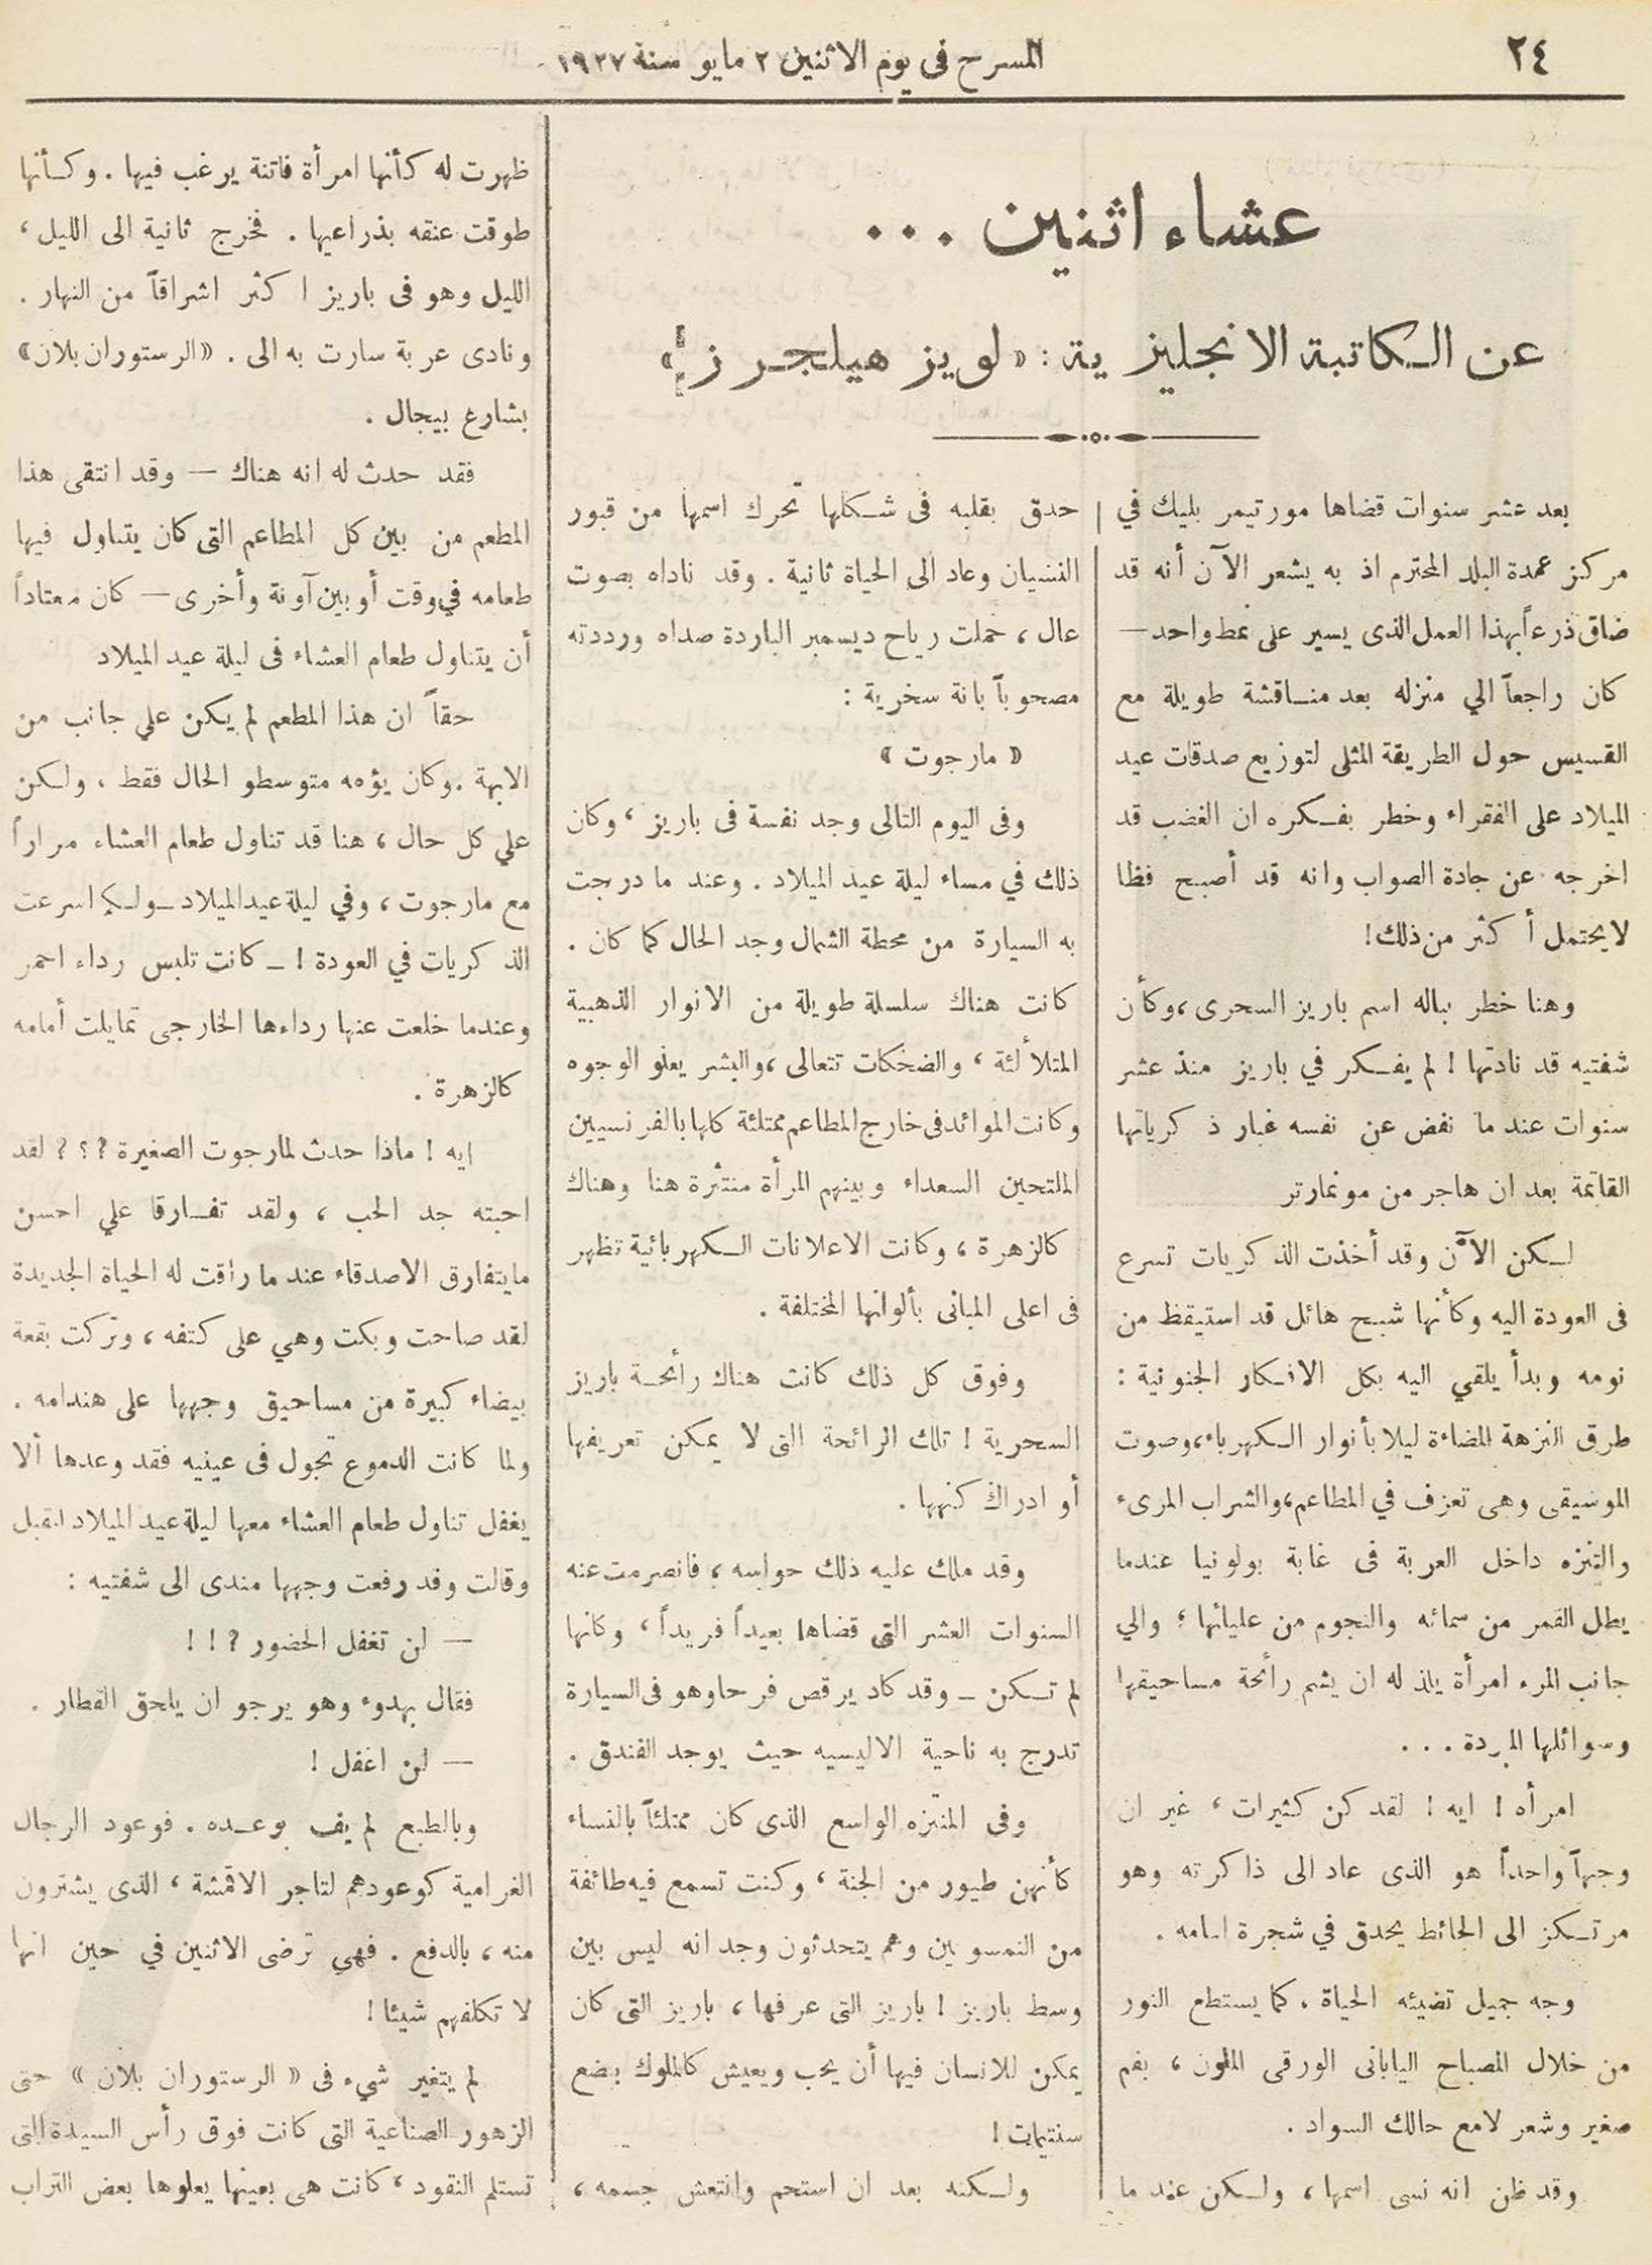 ٢٤
المسرح فى يوم الاثنين ٢ مايو سنة ١٩٢٧
عشاء اثنين ...
عن الكاتبة الانجليزية : «لويز هيلجرز»
بعد عشر سنوات قضاها مورتيمر بليك في
مركز عمدة البلد المحترم اذ به يشعر الآن أنه قد
ضاق ذرءاً بهذا العمل الذى يسير على نمط واحد —
كان راجعاً الي منزله بعد مناقشة طويلة مع
القسيس حول الطريقة المثلى لتوزيع صدقات عيد
الميلاد على الفقراء وخطر بفكره ان الغضب قد
اخرجه عن جادة الصواب وانه قد أصبح فظا
لا يحتمل أكثر من ذلك!
وهنا خطر بباله اسم باريز السحرى، وكأن
شفتيه قد نادتها ! لم يفكر في باريز منذ عشر
سنوات عند ما نفض عن نفسه غبار ذكرياتها
القاتمة بعد ان هاجر من مونمارتر
لكن الآن وقد أخذت الذكريات تسرع
فى العودة اليه وكأنها شبح هائل قد استيقظ من
نومه وبدأ يلقي اليه بكل الافكار الجنونية :
طرق النزهة المضاءة ليلا بأنوار الكهرباء، وصوت
الموسيقى وهى تعزف في المطاعم، والشراب المرىء
والتنزه داخل العربة فى غابة بولونيا عندما
يطل القمر من سمائه والنجوم من عليائها ؛ والي
جانب المرء امرأة يلذ له ان يشم رأئحة مساحيقها
وسوائلها المبردة ...
امرأه ! ايه ! لقد كن كثيرات ، غير ان
وجهاً واحداً هو الذى عاد الى ذاكرته وهو
مرتكز الى الحائط يحدق في شجرة امامه .
وجه جميل تضيئه الحياة . كما يستطع النور
من خلال المصباح اليابانى الورقى الملون ، بفم
صغير وشعر لامع حالك السواد .
وقد ظن انه نسى اسمها ، ولكن عند ما
حدق بقلبه فى شكلها تحرك اسمها من قبور
النسيان وعاد الى الحياة ثانية . وقد ناداه بصوت
عال ، حملت رياح ديسمبر الباردة صداه ورددته
مصحوباً بانة سخرية :
« مارجوت »
وفى اليوم التالى وجد نفسة فى باريز ، وكان
ذلك في مساء ليلة عيد الميلاد . وعند ما درجت
به السيارة من محطة الشمال وجد الحال كما كان .
كانت هناك سلسلة طويلة من الانوار الذهبية
المتلألئة ، والضحكات تتعالى ، والبشر يعلو الوجوه
وكانت الموائد فى خارج المطاعم ممتلئة كلها بالفرنسيين
الملتحين السعداء وبينهم المرأة منتثرة هنا وهناك
كالزهرة ، وكانت الاعلانات الكهربائية تظهر
فى اعلى المبانى بألوانها المختلفة .
وفوق كل ذلك كانت هناك رأئحة باريز
السحرية ! تلك الرائحة التى لا يمكن تعريفها
أو ادراك كنهها .
وقد ملك عليه ذلك حواسه ، فانصرمت عنه
السنوات العشر التى قضاها بعيداً فريداً ، وكانها
لم تكن — وقد كاد يرقص فرحا وهو فى السيارة
تدرج به ناحية الاليسيه حيث يوجد الفندق .
وفى المنتزه الواسع الذى كان ممتلئاً بالنساء
كأنهن طيور من الجنة ، وكنت تسمع فيه طائفة
من النمسويين وهم يتحدثون وجد انه ليس بين
وسط باريز ! باريز التى عرفها ، باريز التى كان
يمكن للانسان فيها أن يحب ويعيش كالملوك ببضع
سنتيمات !
ولكنه بعد ان استحم وانتعش جسمه ،
ظهرت له كأنها امرأة فاتنة يرغب فيها . وكأنها
طوقت عنقه بذراعيها . فخرج ثانية الى الليل ،
الليل وهو فى باريز اكثر اشراقاً من النهار .
ونادى عربة سارت به الى . «الرستوران بلان»
بشارع بيجال .
فقد حدث له انه هناك — وقد انتقى هذا
المطعم من بين كل المطاعم التى كان يتناول فيها
طعامه في وقت أو بين آونة وأخرى — كان معتاداً
أن يتناول طعام العشاء فى ليلة عيد الميلاد
حقاً ان هذا المطعم لم يكن علي جانب من
الابهة . وكان يؤمه متوسطو الحال فقط ، ولكن
علي كل حال ، هنا قد تناول طعام العشاء مراراً
مع مارجوت ، وفي ليلة عيد الميلاد — اسرعت
الذكريات في العودة ! — كانت تلبس رداء احمر
وعندما خلعت عنها رداءها الخارجى تمايلت أمامه
كالزهرة .
ايه ! ماذا حدث لمارجوت الصغيرة ؟ ؟ ؟ لقد
احبته جد الحب ، ولقد تفارقا علي احسن
مايتفارق الاصدقاء عند ما راقت له الحياة الجديدة
لقد صاحت وبكت وهي على كتفه ، وتركت بقعة
بيضاء كبيرة من مساحيق وجهها على هندامه .
ولما كانت الدموع تجول فى عينيه فقد وعدها ألا
يغفل تناول طعام العشاء معها ليلة عيد الميلاد المقبل
وقالت وقد رفعت وجهها مندى الى شفتيه :
— لن تغفل الحضور ? ! !
فقال بهدوء وهو يرجو ان يلحق القطار .
— لن اغفل !
وبالطبع لم يف بوعده . فوعود الرجال
الغرامية كوعودهم لتاجر الاقمشة ، الذى يشترون
منه ، بالدفع . فهي ترضى الاثنين في حين انها
لا تكلفهم شيئا !
لم يتغير شيء فى « الرستوران بلان » حتى
الزهور الصناعية التى كانت فوق رأس السيدة التى
تستلم النقود ، كانت هى بعينها يعلوها بعض التراب